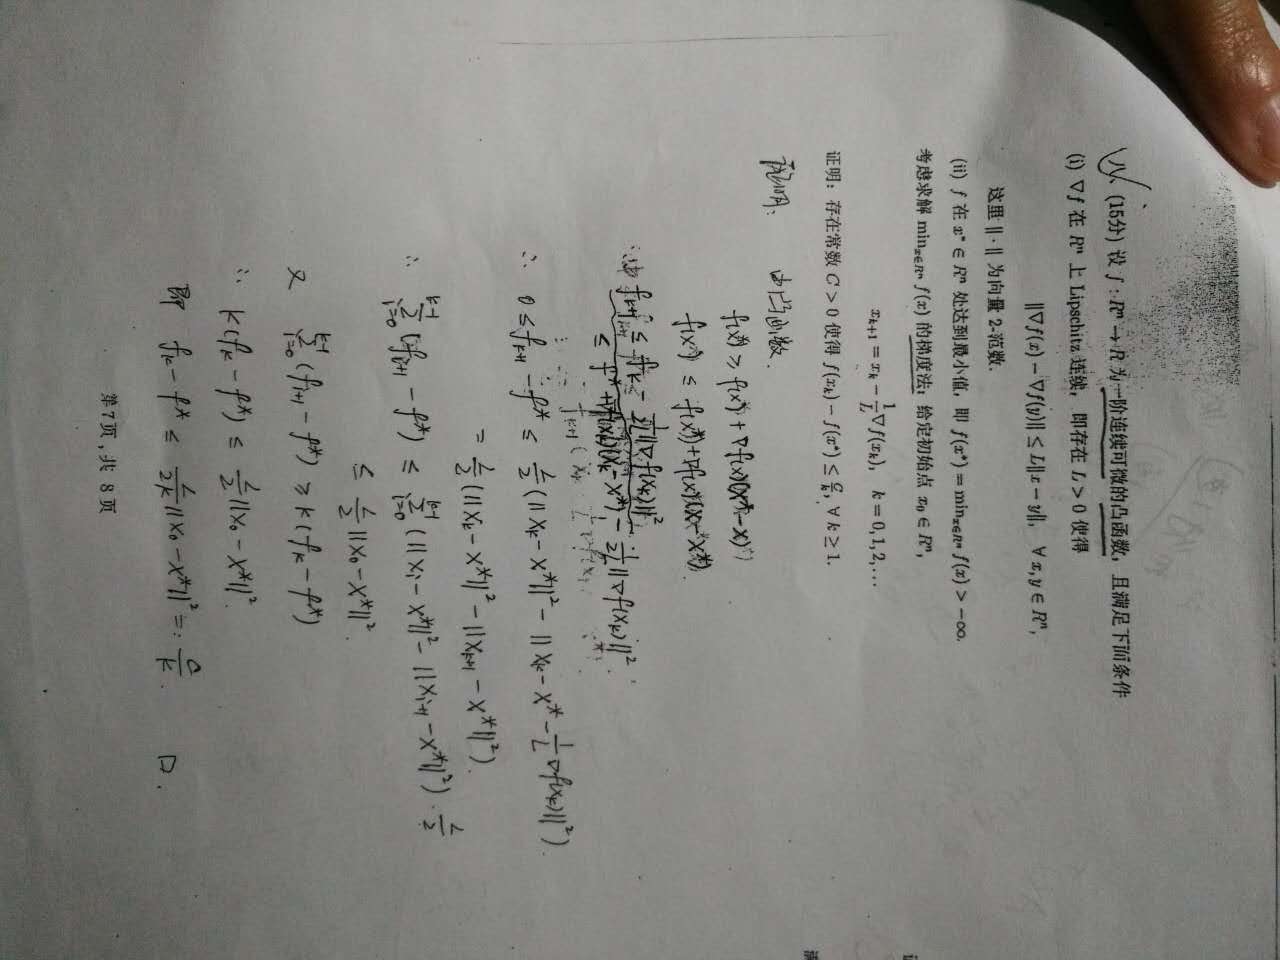 八、(15分) 设 f : Rⁿ → R 为一阶连续可微的凸函数, 且满足下面条件
(i) ∇f 在 Rⁿ 上 Lipschitz 连续, 即存在 L > 0 使得
‖∇f(x) − ∇f(y)‖ ≤ L‖x − y‖, ∀ x, y ∈ Rⁿ,
这里 ‖·‖ 为向量 2-范数.
(ii) f 在 x* ∈ Rⁿ 处达到最小值, 即 f(x*) = min_{x∈Rⁿ} f(x) > −∞.
考虑求解 min_{x∈Rⁿ} f(x) 的梯度法: 给定初始点 x₀ ∈ Rⁿ,
x_{k+1} = x_k − 1/L ∇f(x_k), k = 0, 1, 2, …
证明: 存在常数 C > 0 使得 f(x_k) − f(x*) ≤ C/k, ∀ k ≥ 1.
证明: 由凸函数.
f(x*) ≥ f(x) + ∇f(x)(x*−x)
f(x) ≤ f(x*) + ∇f(x)(x−x*).
∴ 由 f_{k+1} ≤ f_k − 1/2L ‖∇f(x_k)‖²
≤ f* + ∇f(x_k)(x_k−x*) − 1/2L ‖∇f(x_k)‖².
∴ 0 ≤ f_{k+1} − f* ≤ L/2 (‖x_k − x*‖² − ‖x_k − x* − 1/L ∇f(x_k)‖²).
= L/2 (‖x_k − x*‖² − ‖x_{k+1} − x*‖²).
∴ Σ_{i=0}^{k−1} (f_{i+1} − f*) ≤ Σ_{i=0}^{k−1} (‖x_i − x*‖² − ‖x_{i+1} − x*‖²) · L/2
≤ L/2 ‖x₀ − x*‖².
又 Σ_{i=0}^{k−1} (f_{i+1} − f*) ≥ k(f_k − f*)
∴ k(f_k − f*) ≤ L/2 ‖x₀ − x*‖².
即 f_k − f* ≤ L/2k ‖x₀ − x*‖² =: C/k. □.
第 7 页, 共 8 页